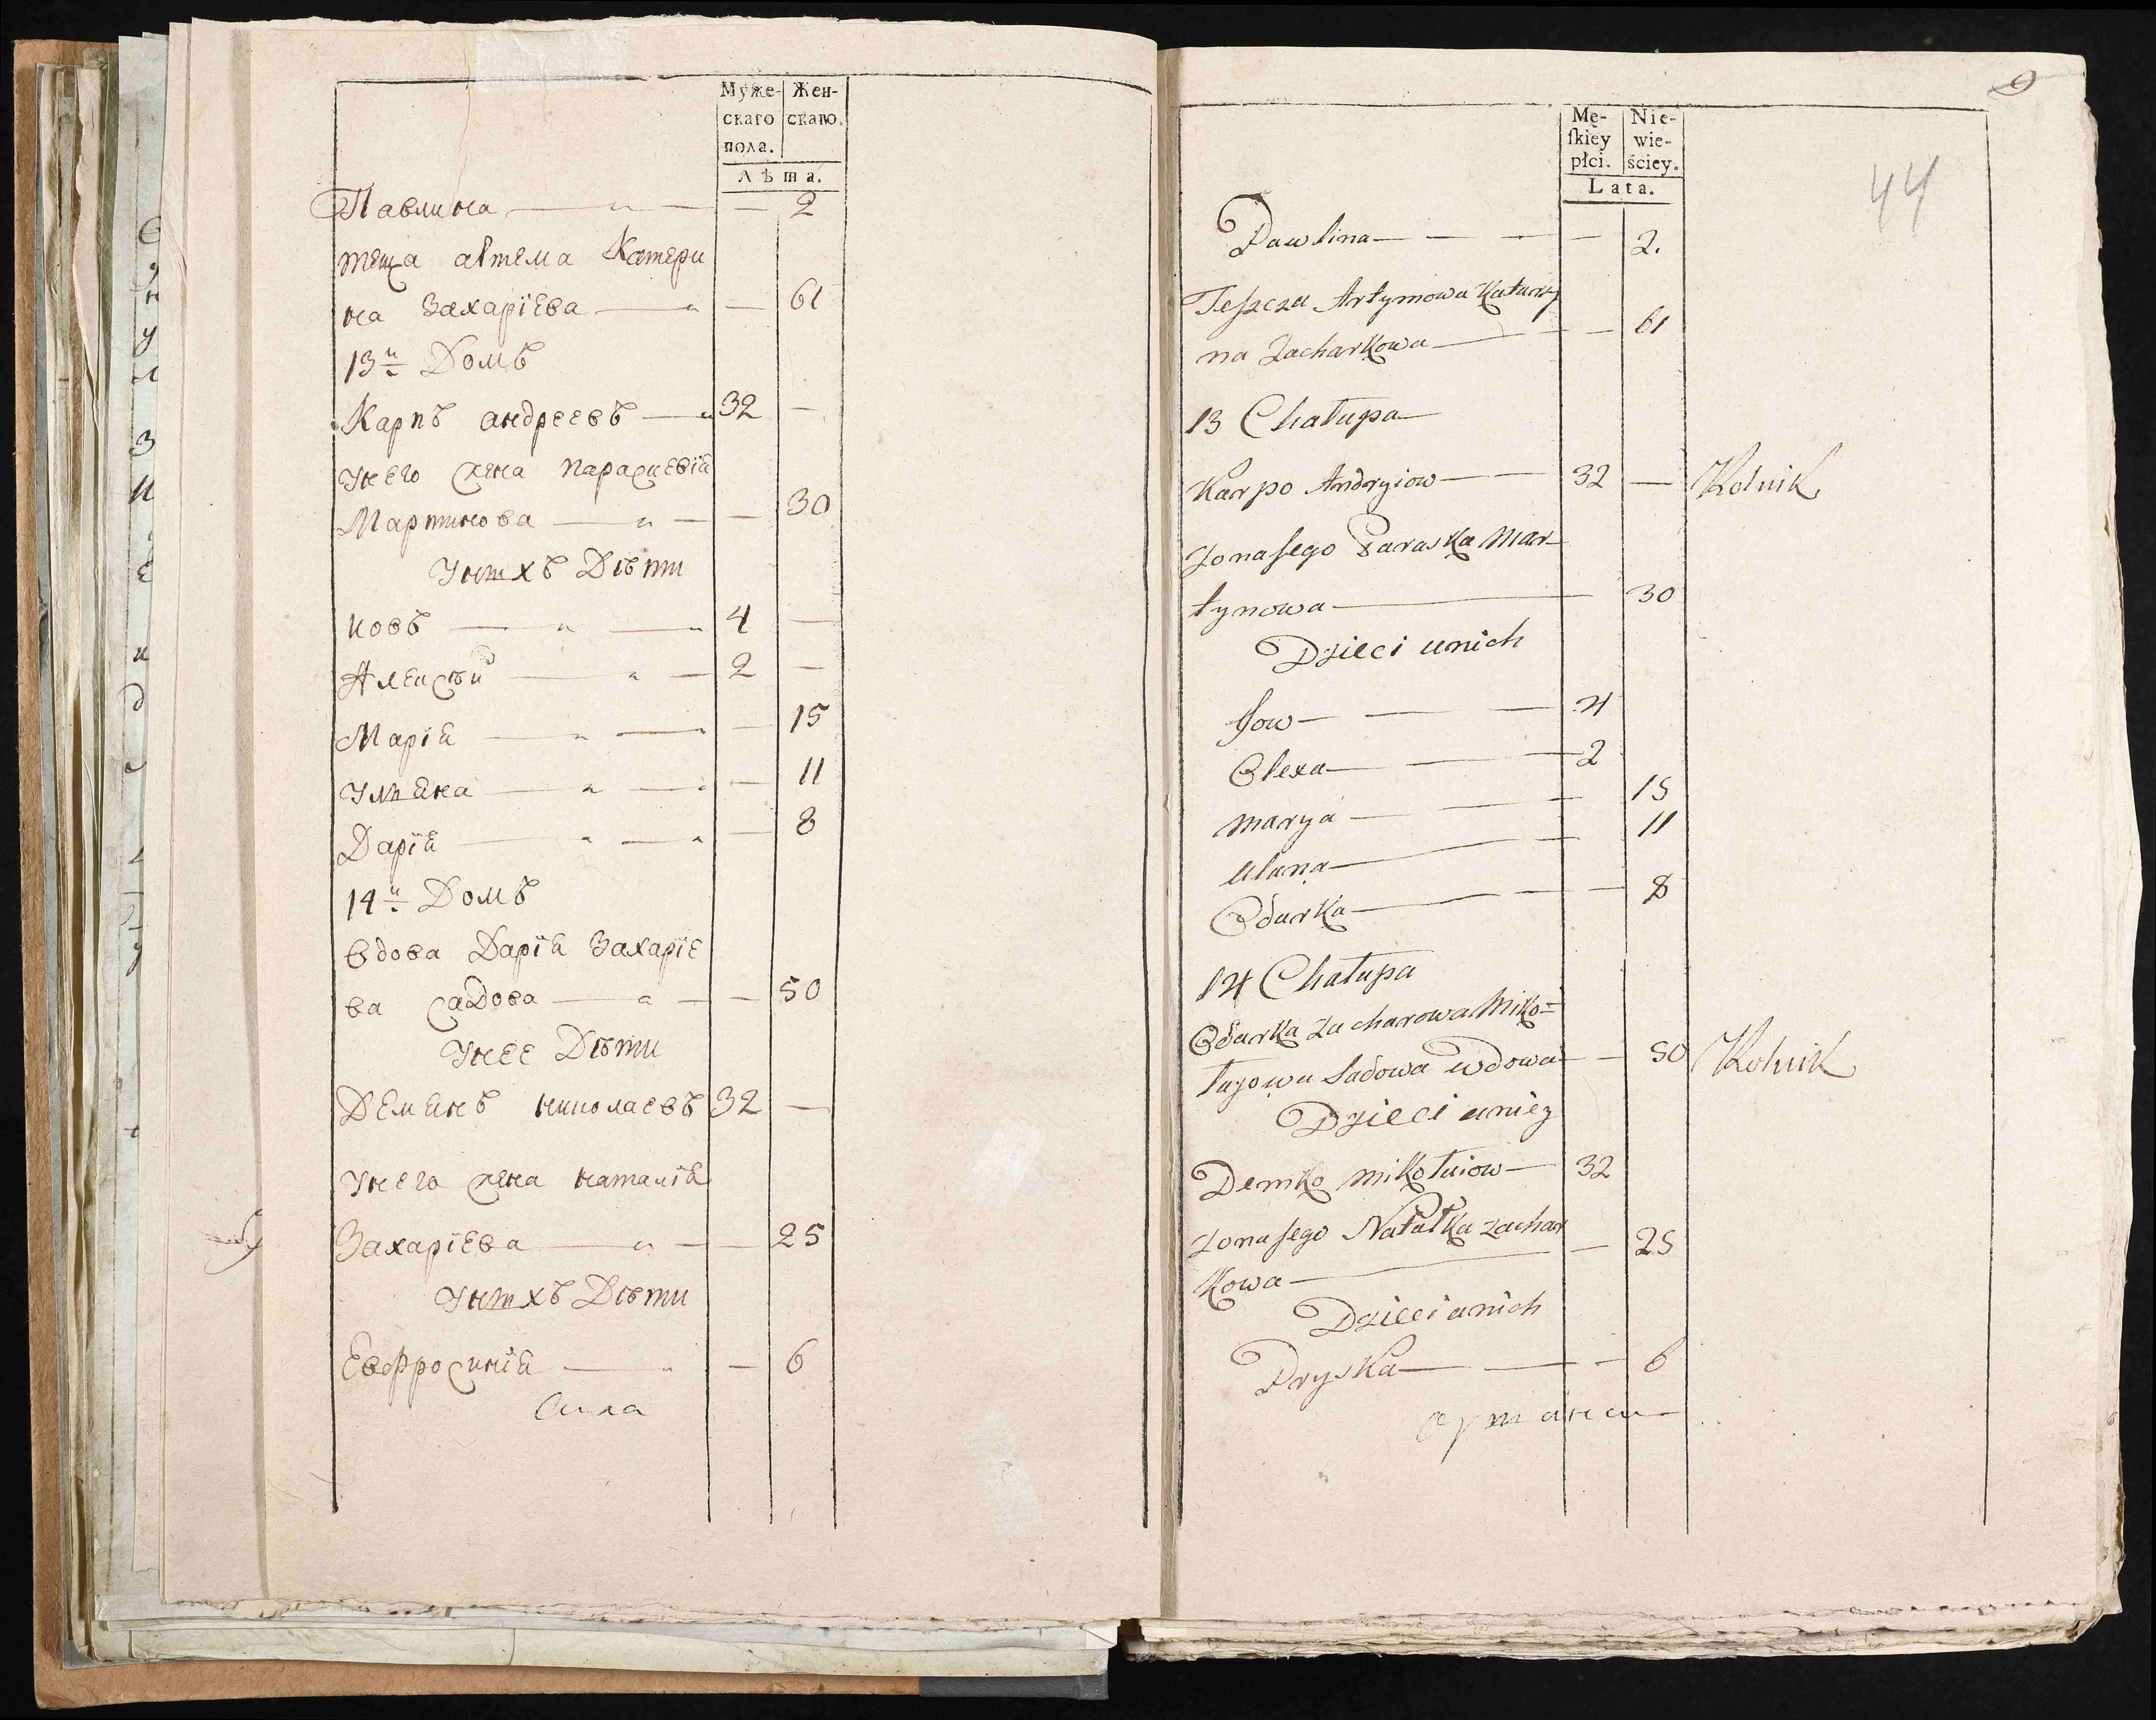 Муже-
скаго
пола.
Жен-
скаго.
Лѣта.
Павлина — 2
теща автема Катери
на Захарїева — 61
13й Домъ
Карпъ андреевъ — 32 —
унего жена параскевїя
Мартинова — 30
Унихъ Дѣти
иовъ — 4 —
Алеѯѣй — 2 —
Марїя — 15
Ульяна — 11
Дарїя — 8
14й Домъ
вдова Дарїя Захарїе
ва садова — 50
Унее Дѣти
Демянъ николаевъ 32 —
Унего жена наталїя
Захарїева — 25
Унихъ Дѣти
Евфросинїя — 6
9
44
Mę-
ſkiey
płci.
Nie-
wie-
ściey.
Lata.
Pawlina — 2.
Teszcza Artymowa Katarzy
na Zacharkowa — 61
13 Chałupa
Karpo Andryiow — 32 — Rolnik
Zona jego Paraska Mar-
tynowa — 30
Dzieci unich
Jow — 4
Olexa — 2
Marya — 15
Ulana — 11
Odarka — 8
14 Chałupa
Odarka Zacharowa Miko-
łajowa Sadowa wdowa — 50 Rolnik
Dzieci uniey
Demko Mikołaiow — 32
Zona jego Natalka Zachar
kowa — 25
Dzieci unich
Pryska — 6